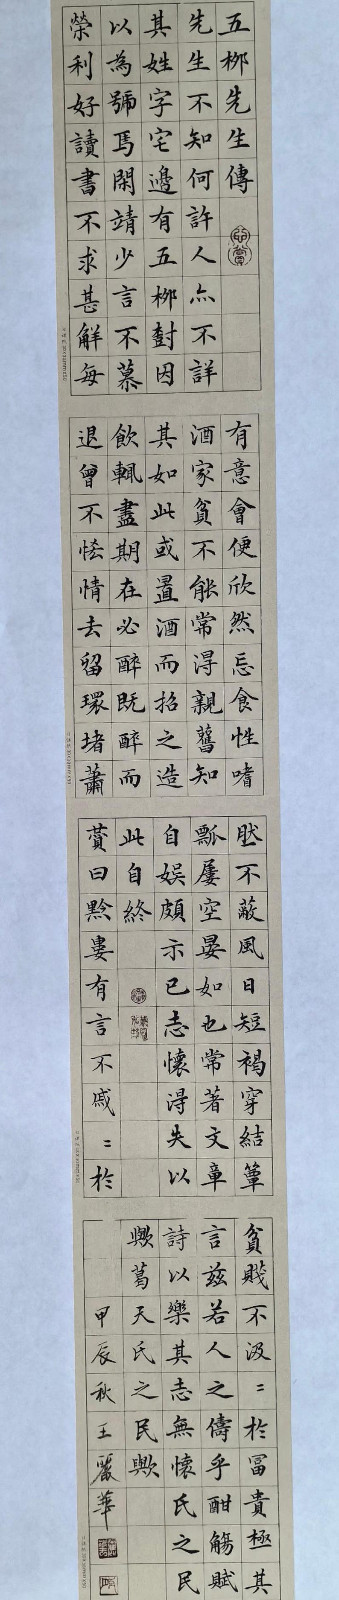 五柳先生傳
先生不知何許人亦不詳
其姓字宅邊有五柳樹因
以為號焉閑靖少言不慕
榮利好讀書不求甚解每
有意會便欣然忘食性嗜
酒家貧不能常得親舊知
其如此或置酒而招之造
飲輒盡期在必醉既醉而
退曾不恡情去留環堵蕭
然不蔽風日短褐穿結簞
瓢屢空晏如也常著文章
自娛頗示己志懷得失以
此自終
贊曰黔婁有言不戚〻於
貧賤不汲〻於富貴極其
言茲若人之儔乎酣觴賦
詩以樂其志無懷氏之民
歟葛天氏之民歟
甲辰秋王麗華